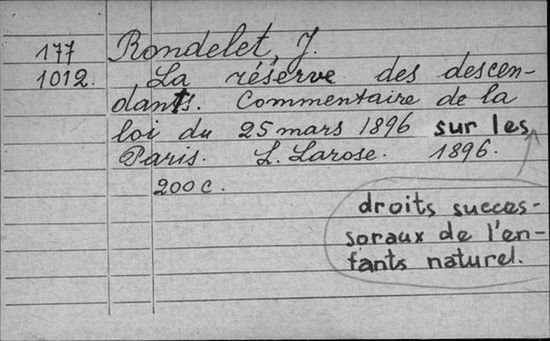 177 Rondelet, J.
1012. La réserve des descen-
dants. Commentaire de la
loi du 25 mars 1896 sur les
Paris. L. Larose. 1896.
200 c.
droits succes-
soraux de l'en-
fants naturel.